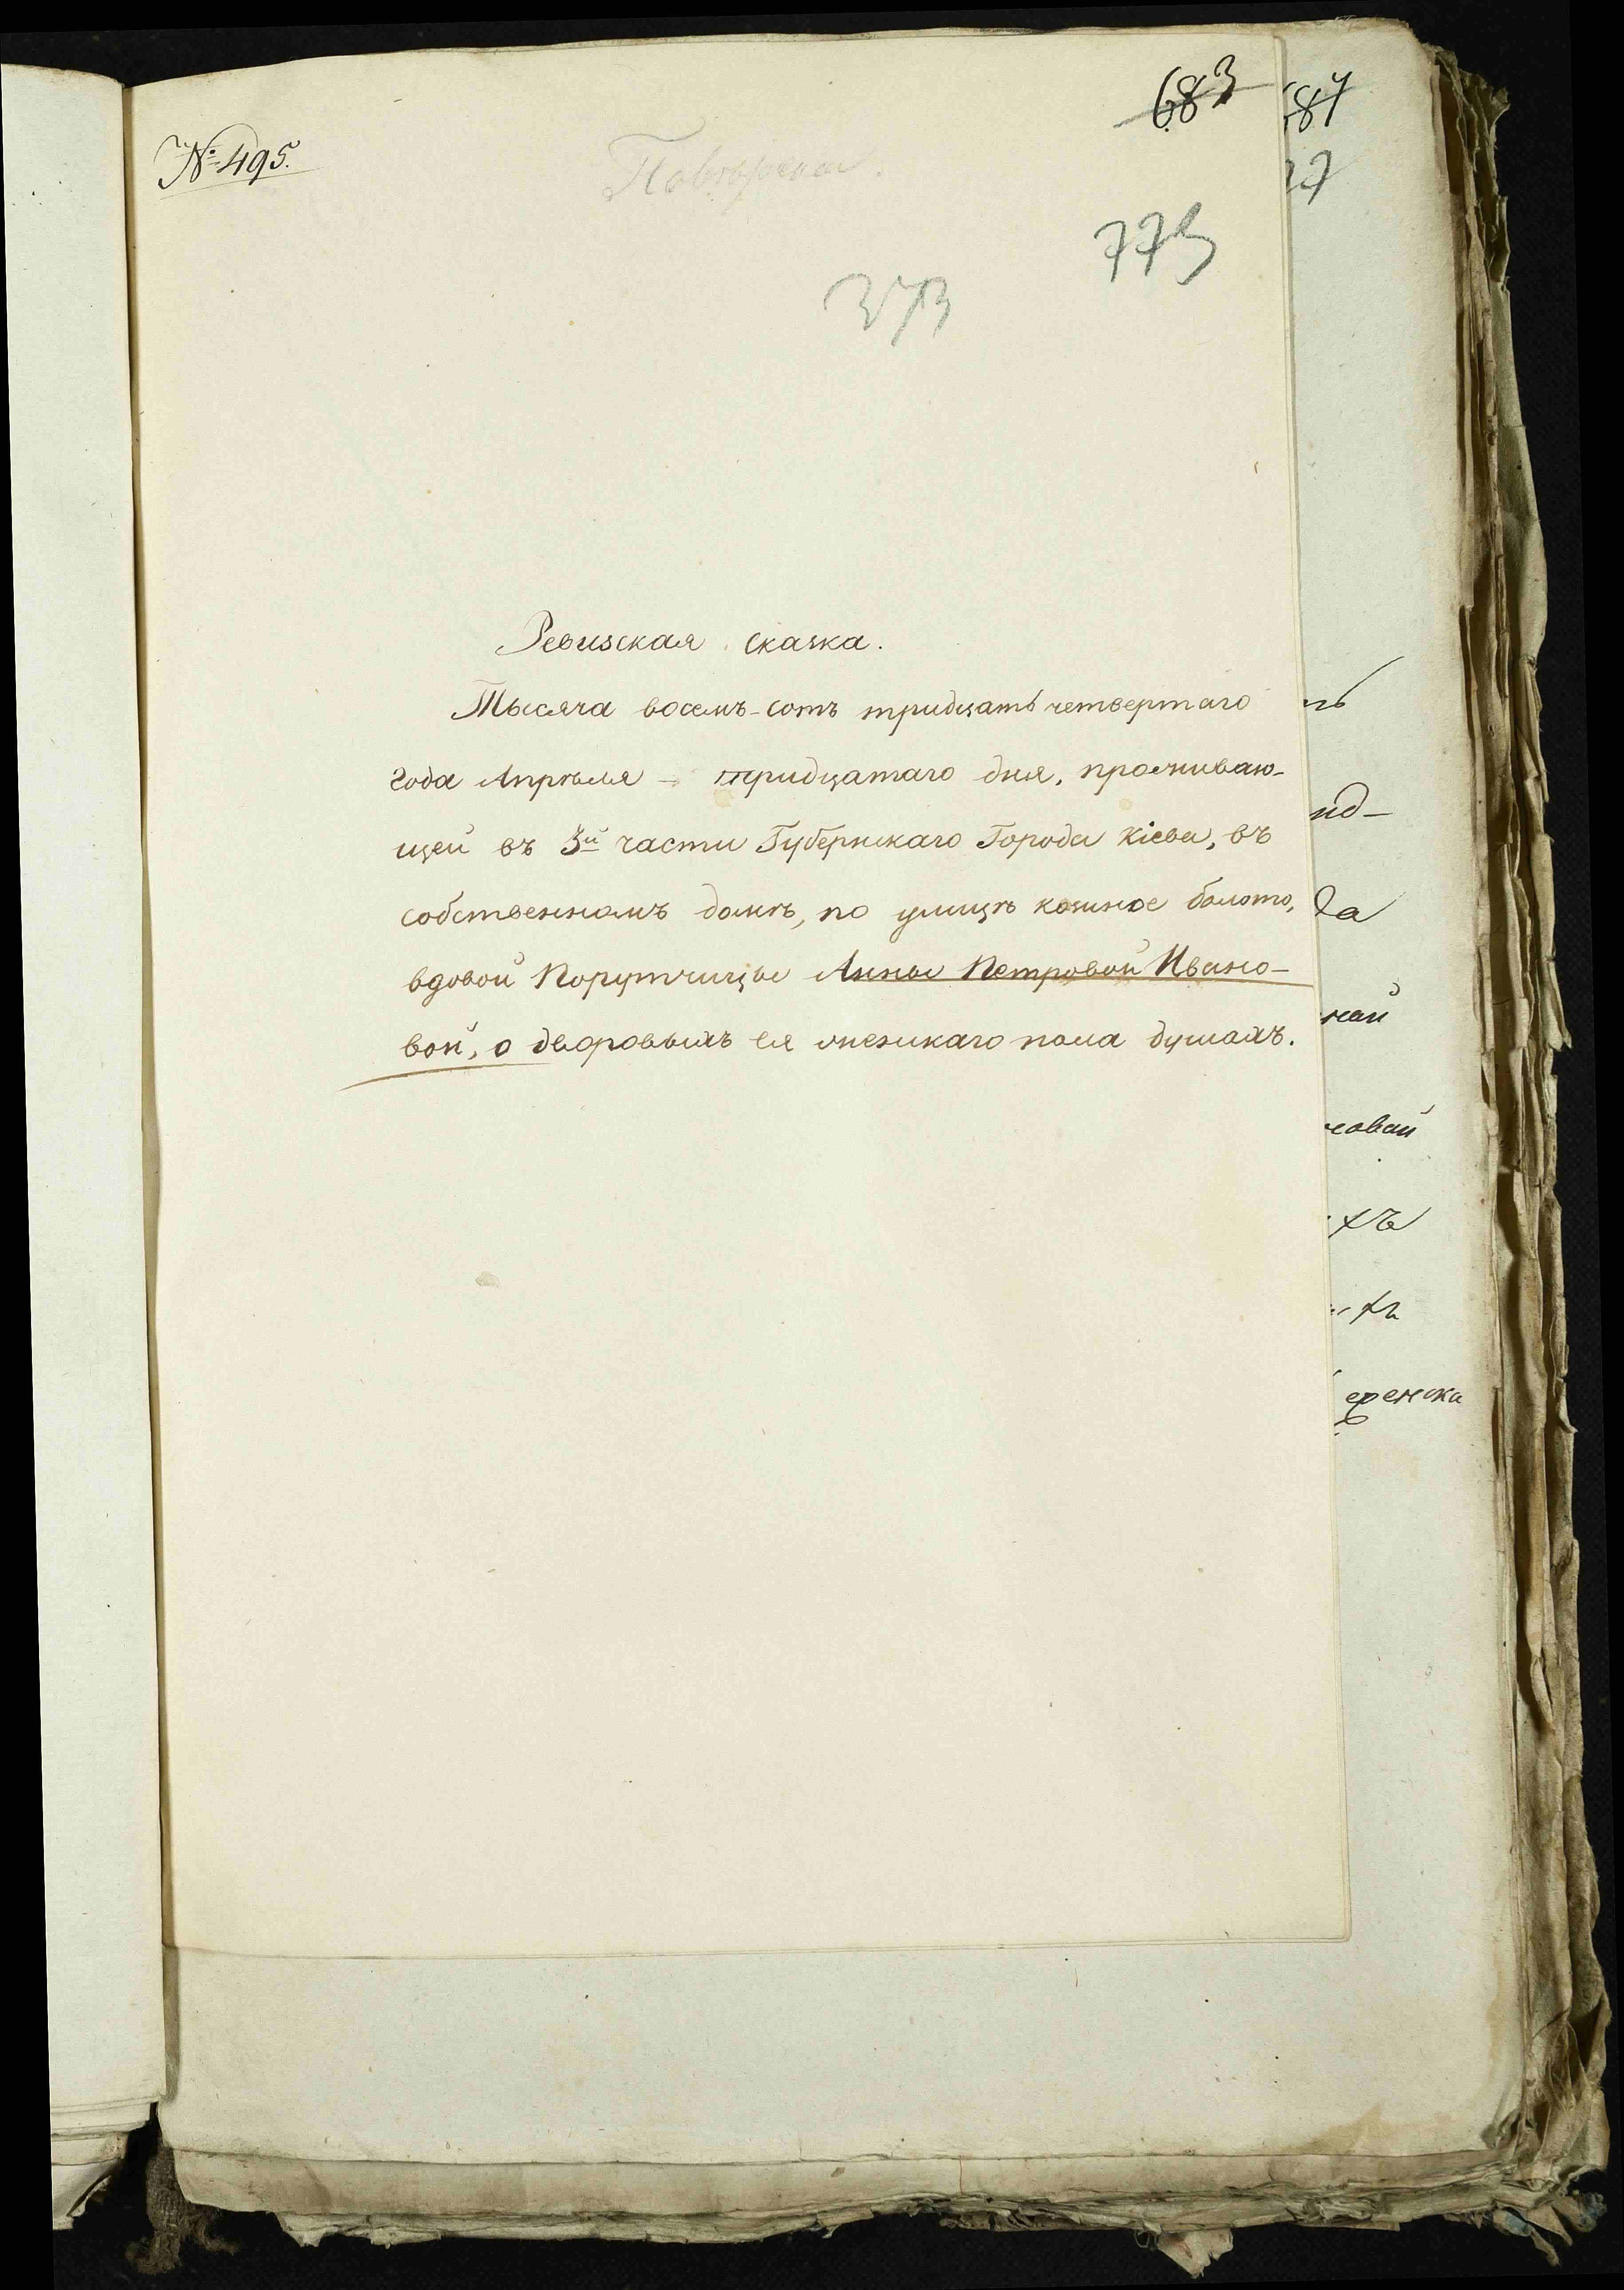 № 495.
683
775
373
Ревизская сказка.
Тысяча восемъ-сотъ тридцать четвертаго
года Апрѣля - тридцатаго дня, проживаю-
щей въ 3й части Губернскаго Города Кіева, въ
собственномъ домѣ, по улицѣ козиное болото,
вдовой Порутчицы Анны Петровой Ивано-
вой, о дворовыхъ ея женскаго пола душахъ.